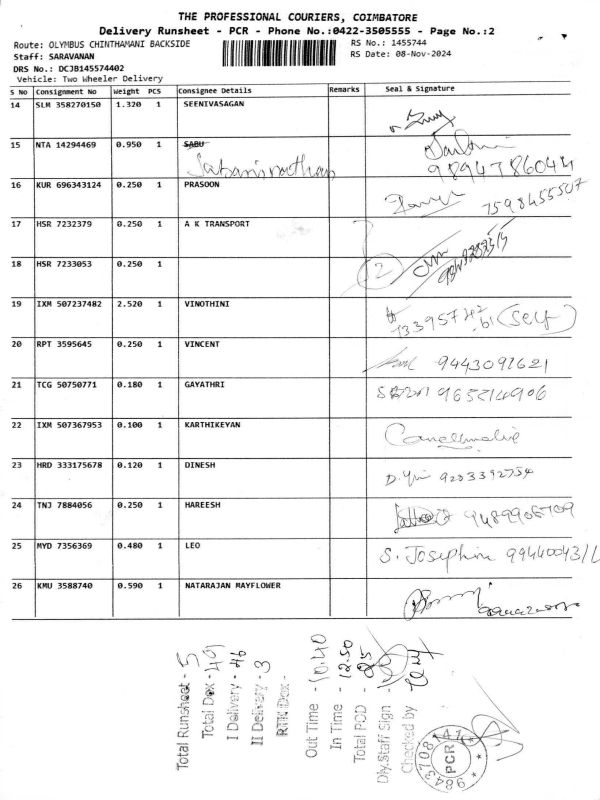 THE PROFESSIONAL COURIERS, COIMBATORE
Delivery Runsheet - PCR - Phone No.:0422-3505555 - Page No.:2
Route: OLYMBUS CHINTHAMANI BACKSIDE
RS No.: 1455744
Staff: SARAVANAN
RS Date: 08-Nov-2024
DRS No.: DCJB145574402
Vehicle: Two Wheeler Delivery
S No Consignment No Weight PCS Consignee Details Remarks Seal & Signature
14 SLM 358270150 1.320 1 SEENIVASAGAN
15 NTA 14294469 0.950 1 SABU
9894786044
16 KUR 696343124 0.250 1 PRASOON
7598455507
17 HSR 7232379 0.250 1 A K TRANSPORT
18 HSR 7233053 0.250 1
2
19 IXM 507237482 2.520 1 VINOTHINI
(self)
20 RPT 3595645 0.250 1 VINCENT 9443091621
21 TCG 50750771 0.180 1 GAYATHRI
22 IXM 507367953 0.100 1 KARTHIKEYAN
23 HRD 333175678 0.120 1 DINESH
24 TNJ 7884056 0.250 1 HAREESH
25 MYD 7356369 0.480 1 LEO S. Josephine
26 KMU 3588740 0.590 1 NATARAJAN MAYFLOWER
Total Runsheet - 5
Total Dox -
I Delivery - 46
II Delivery - 3
RTN Dox -
Out Time - 10.40
In Time - 12.50
Total POD - 25
Dly.Staff Sign
Checked by
PCR